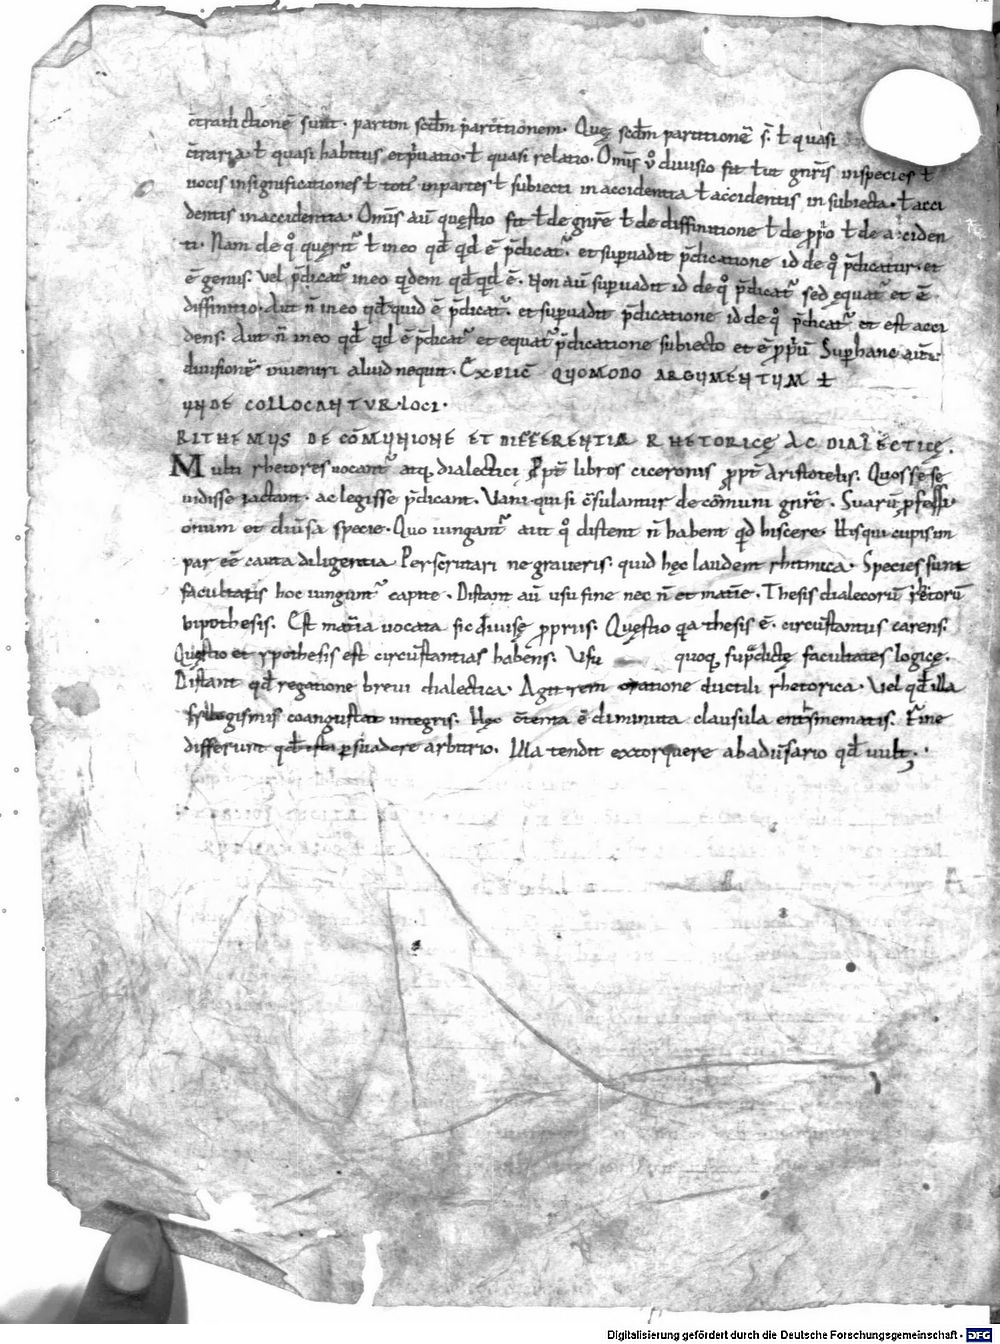 c̄tradictionē sunt · partim scdm partitionem · Quę scdm partitionē s̄ · ł quasi
c̄traria · ł quasi habitus et p̄uatio · ł quasi relatio · Om̄is v̊ diuisio fit ł ut gn̄ris in species ł
uocis in significationes ł toti᷒ in partes ł subiecti in accidentia ł accidentis in subiecta · ł acci
dentis in accidentia · Om̄is aū quęstio fit ł de gn̄re ł de diffinitione ł de pp̄o ł de acciden
ti · Nam de q̊ querit᷑ ł in eo qđ qd ē p̄dicat᷑ · et supuadit p̄dicatione id de q̊ p̄dicatur · et
ē genus · Vel p̄dicat᷑ in eo qdem qđ qd ē · Non aū supuadit id de q̊ p̄dicat᷑ sed ęquat᷑ et ē
diffinitio · Aut n̄ in eo qđ quid ē p̄dicat᷑ · et supuadit p̄dicatione id de q̊ p̄dicat᷑ et est acci
dens · Aut n̄ in eo qđ qd ē p̄dicat᷑ et equat᷑ p̄dicatione subiecto et ē pp̄ū Sup hanc autē
diuisionē inueniri aliud nequit · EXPLIC̄ QVOMODO ARGVMENTVM ł
VNDE COLLOCANTVR · LOCI ·
RITHEMVS DE COM̄VNIONE ET DIFFERENTIA RHETORICĘ AC DIALECTICĘ .
Multi rhetores uocant᷑ atq, dialectici Ppt̄ libros ciceronis ppt̄ Aristotelis · Quos sese
uidisse iactant · ac legisse p̄dicant · Vani qui si c̄sulantur de com̄uni gn̄re · Suarū pfessi
onum et diu̅sa specie · Quo iungant᷑ aut q̊ distent n̄ habent qđ hiscere · His qui cupis im
par eē cauta diligentia Perscrutari ne graueris · quid hęc laudent rhitmica · Species sunt
facultatis hoc iungunt᷑ capite · Distant aū usu fine nec n̄ et matīe · Thesis dialecorū rhetorū
vipothesis · Est mat̄ia uocata sic diuisę pprius · Quęstio qa thesis ē · circūstantiis carens ·
Quęstio et ypothesis est circūstantias habens · Vsu quoq, sup̄dictę facultates logicę ·
Distant qđ rogatione breui dialectica · Agit rem oratione ductili rhetorica · Vel qđ illa
syllogismis coangustat integris · Hęc c̄tenta ē diminuta clausula entimematis · Fine
differunt qđ ista psuadere arbitrio · Illa tendit extorquere ab adu̅sario qđ uult ;
Digitalisierung gefördert durch die Deutsche Forschungsgemeinschaft - DFG